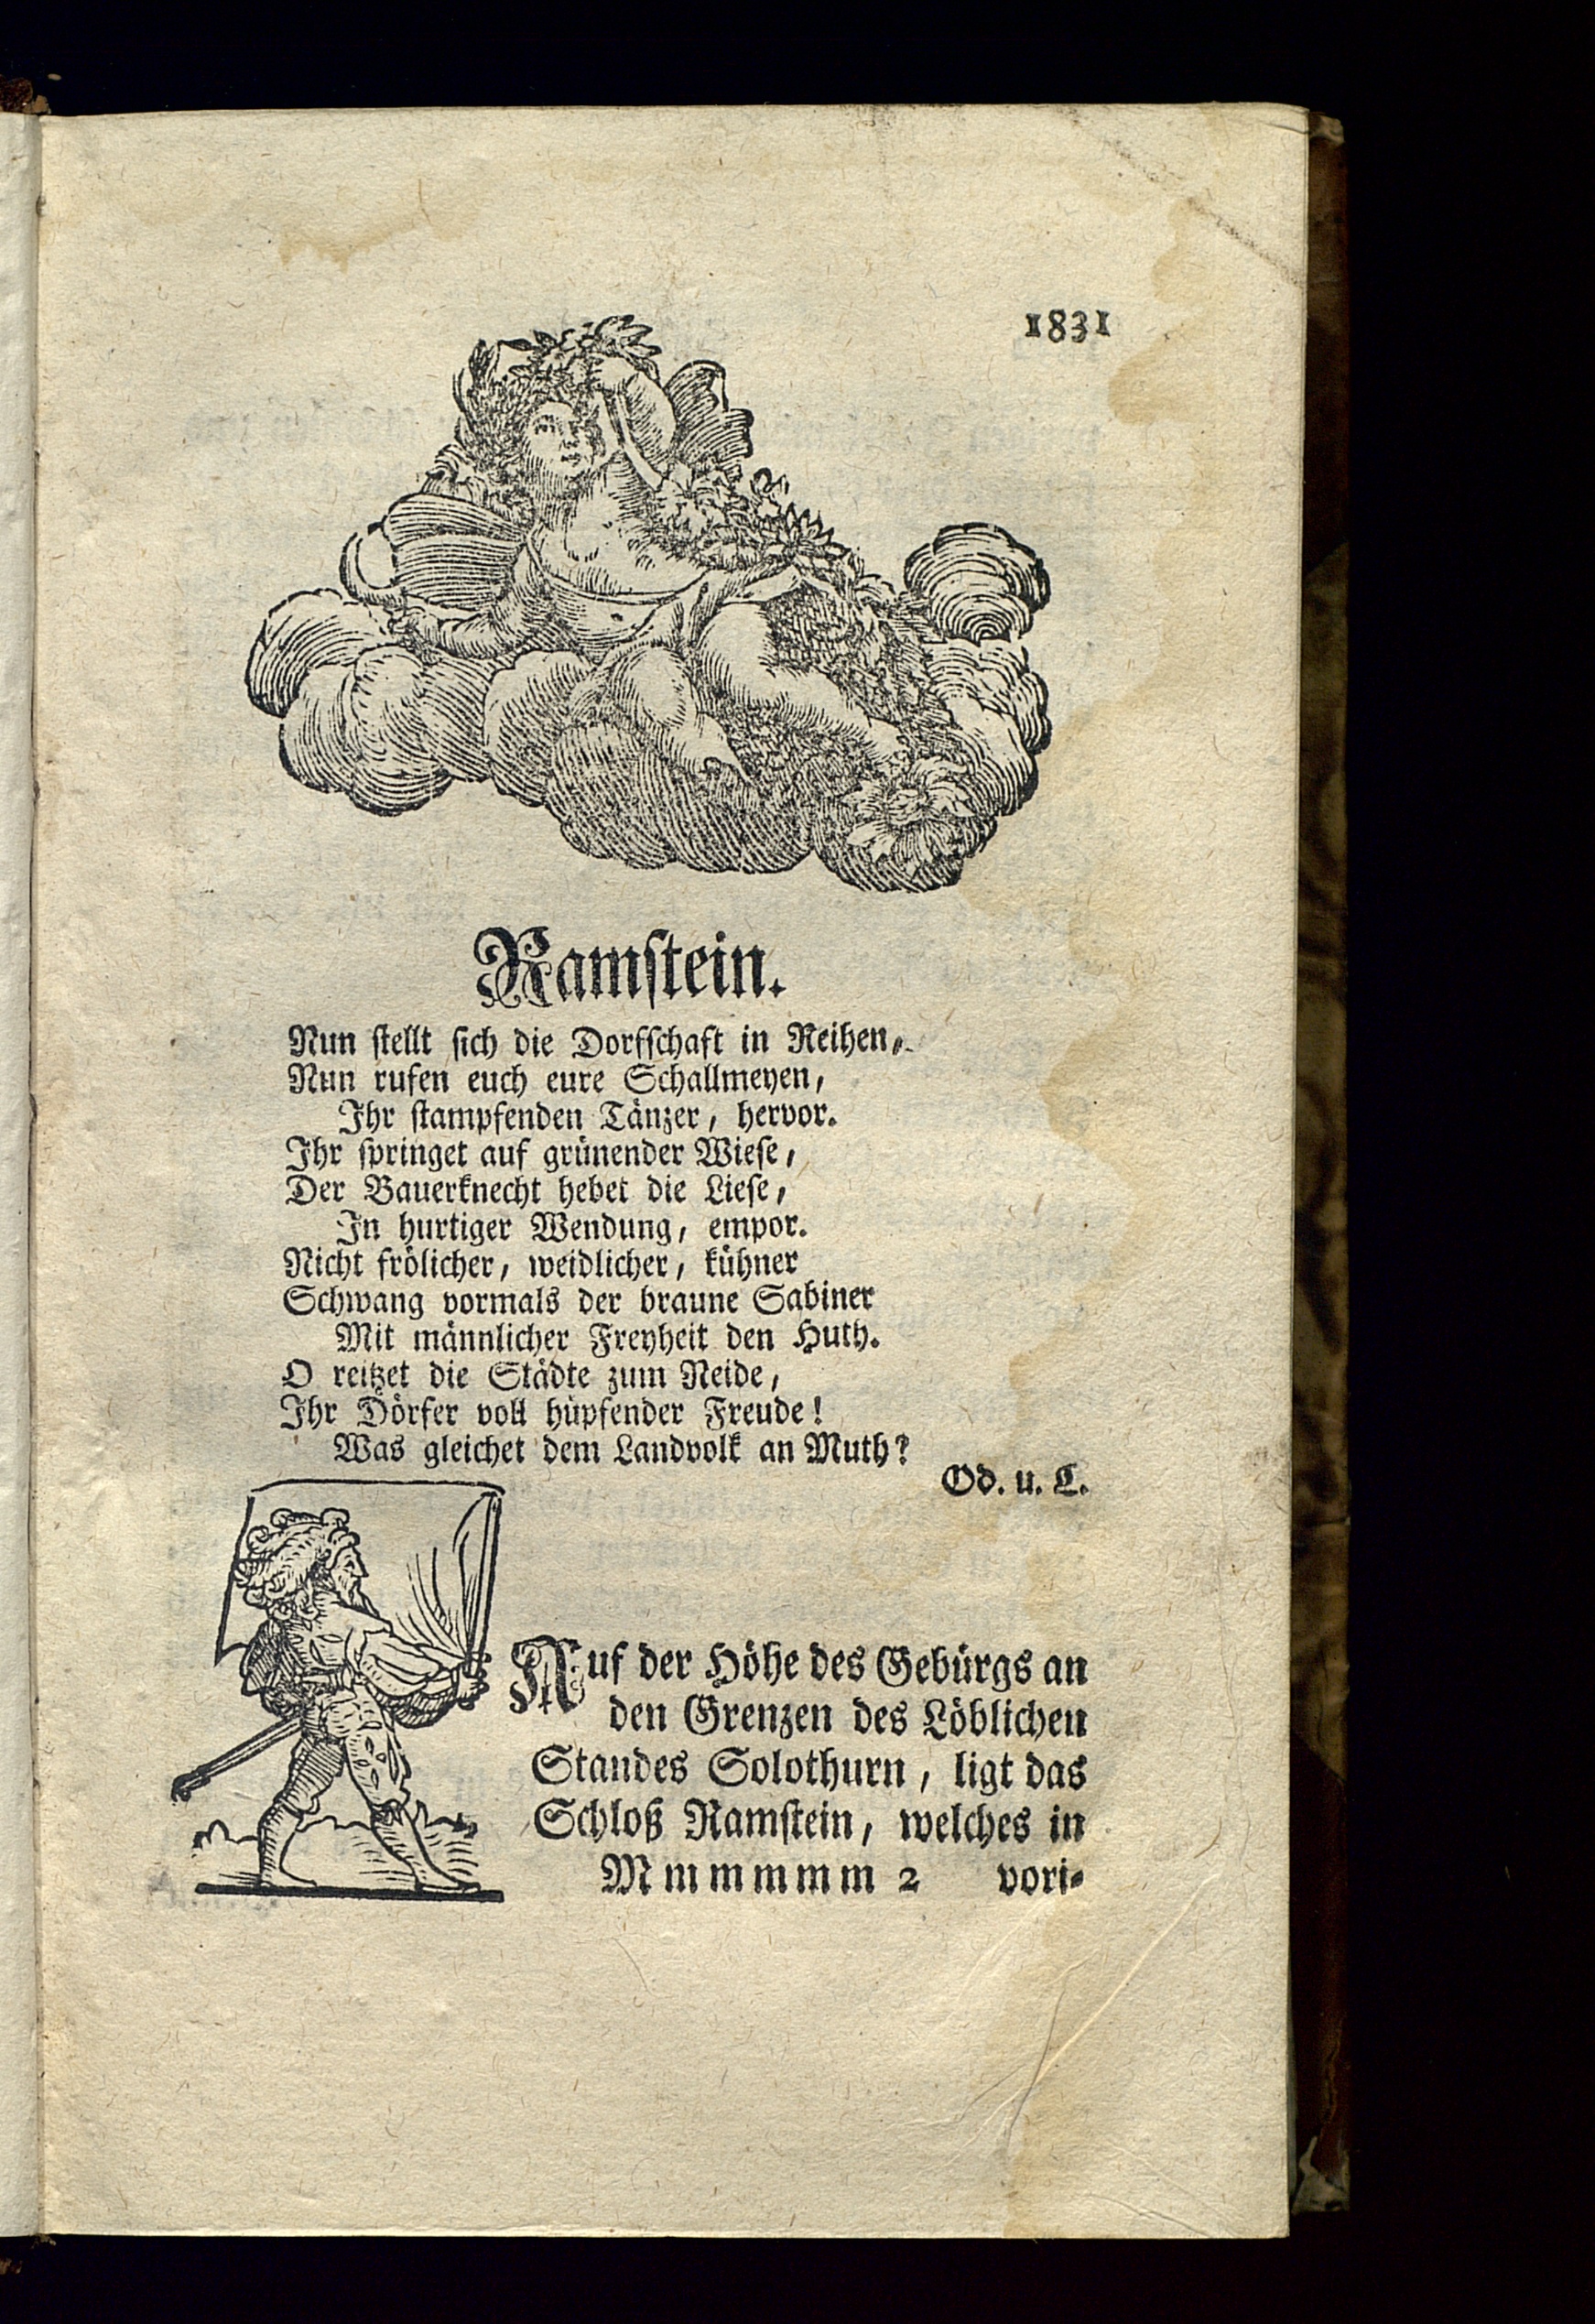 1831
Ramstein.
Nun stellt sich die Dorfschaft in Reihen,
Nun rufen euch eure Schallmeyen,
Ihr stampfenden Tänzer, hervor.
Ihr springet auf grünender Wiese,
Der Bauerknecht hebet die Liese,
In hurtiger Wendung, empor.
Nicht frölicher, weidlicher, kühner
Schwang vormals der braune Sabiner
Mit männlicher Freyheit den Huth.
O reitzet die Städte zum Neide,
Ihr Dörfer voll hüpfender Freude!
Was gleichet dem Landvolk an Muth?
Od. u. L.
Auf der Höhe des Gebürgs an
den Grenzen des Löblichen
Standes Solothurn, ligt das
Schloß Ramstein, welches in
M m m m m m 2 vori-